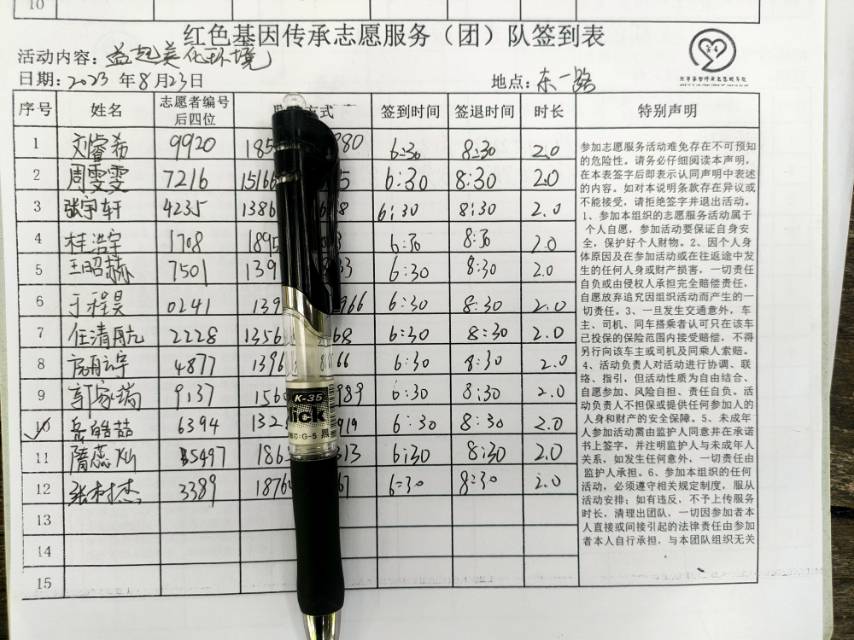 10
红色基因传承志愿服务（团）队签到表
活动内容：益起美化环境
日期：2023年8月23日 地点：东一路
序号 姓名 志愿者编号后四位 方式 签到时间 签退时间 时长 特别声明
1 刘睿希 9920 185 880 6:30 8:30 2.0
2 周雯雯 7216 15166 5 6:30 8:30 2.0
3 张宇轩 4235 1386 8 6:30 8:30 2.0
4 桂浩宇 1708 1895 3 6:30 8:30 2.0
5 王昭赫 7501 139 33 6:30 8:30 2.0
6 于程昊 0241 139 966 6:30 8:30 2.0
7 任清航 2228 1356 68 6:30 8:30 2.0
8 4877 1396 66 6:30 8:30 2.0
9 郭家瑞 9137 156 989 6:30 8:30 2.0
10 岳皓喆 6394 132 919 6:30 8:30 2.0
11 隋蕊灿 5497 186 313 6:30 8:30 2.0
12 张树杰 3389 1876 67 6:30 8:30 2.0
13
14
15
参加志愿服务活动难免存在不可预知
的危险性。请务必仔细阅读本声明，
在本表签字后即表示认同声明中表述
的内容。如对本说明条款存在异议或
不能接受，请拒绝签字并退出活动。
1、参加本组织的志愿服务活动属于
个人自愿，参加活动要保证自身安
全，保护好个人财物。2、因个人身
体原因及在参加活动或在往返途中发
生的任何人身或财产损害，一切责任
自负或由侵权人承担完全赔偿责任，
自愿放弃追究因组织活动而产生的一
切责任。3、一旦发生交通意外，车
主、司机、同车搭乘者认可只在该车
已投保的保险范围内接受赔偿，不得
另行向该车主或司机及同乘人索赔。
4、活动负责人对活动进行协调、联
络、指引，但活动性质为自由结合、
自愿参加、风险自担、责任自负。活
动负责人不担保或提供任何参加人的
人身和财产的安全保障。5、未成年
人参加活动需由监护人同意并在承诺
书上签字，并注明监护人与未成年人
关系，如发生任何意外，一切责任由
监护人承担。6、参加本组织的任何
活动，必须遵守相关规定制度，服从
活动安排；如有违反，不予上传服务
时长，清理出团队，一切因参加者本
人直接或间接引起的法律责任由参加
者本人自行承担，与本团队组织无关
K-35